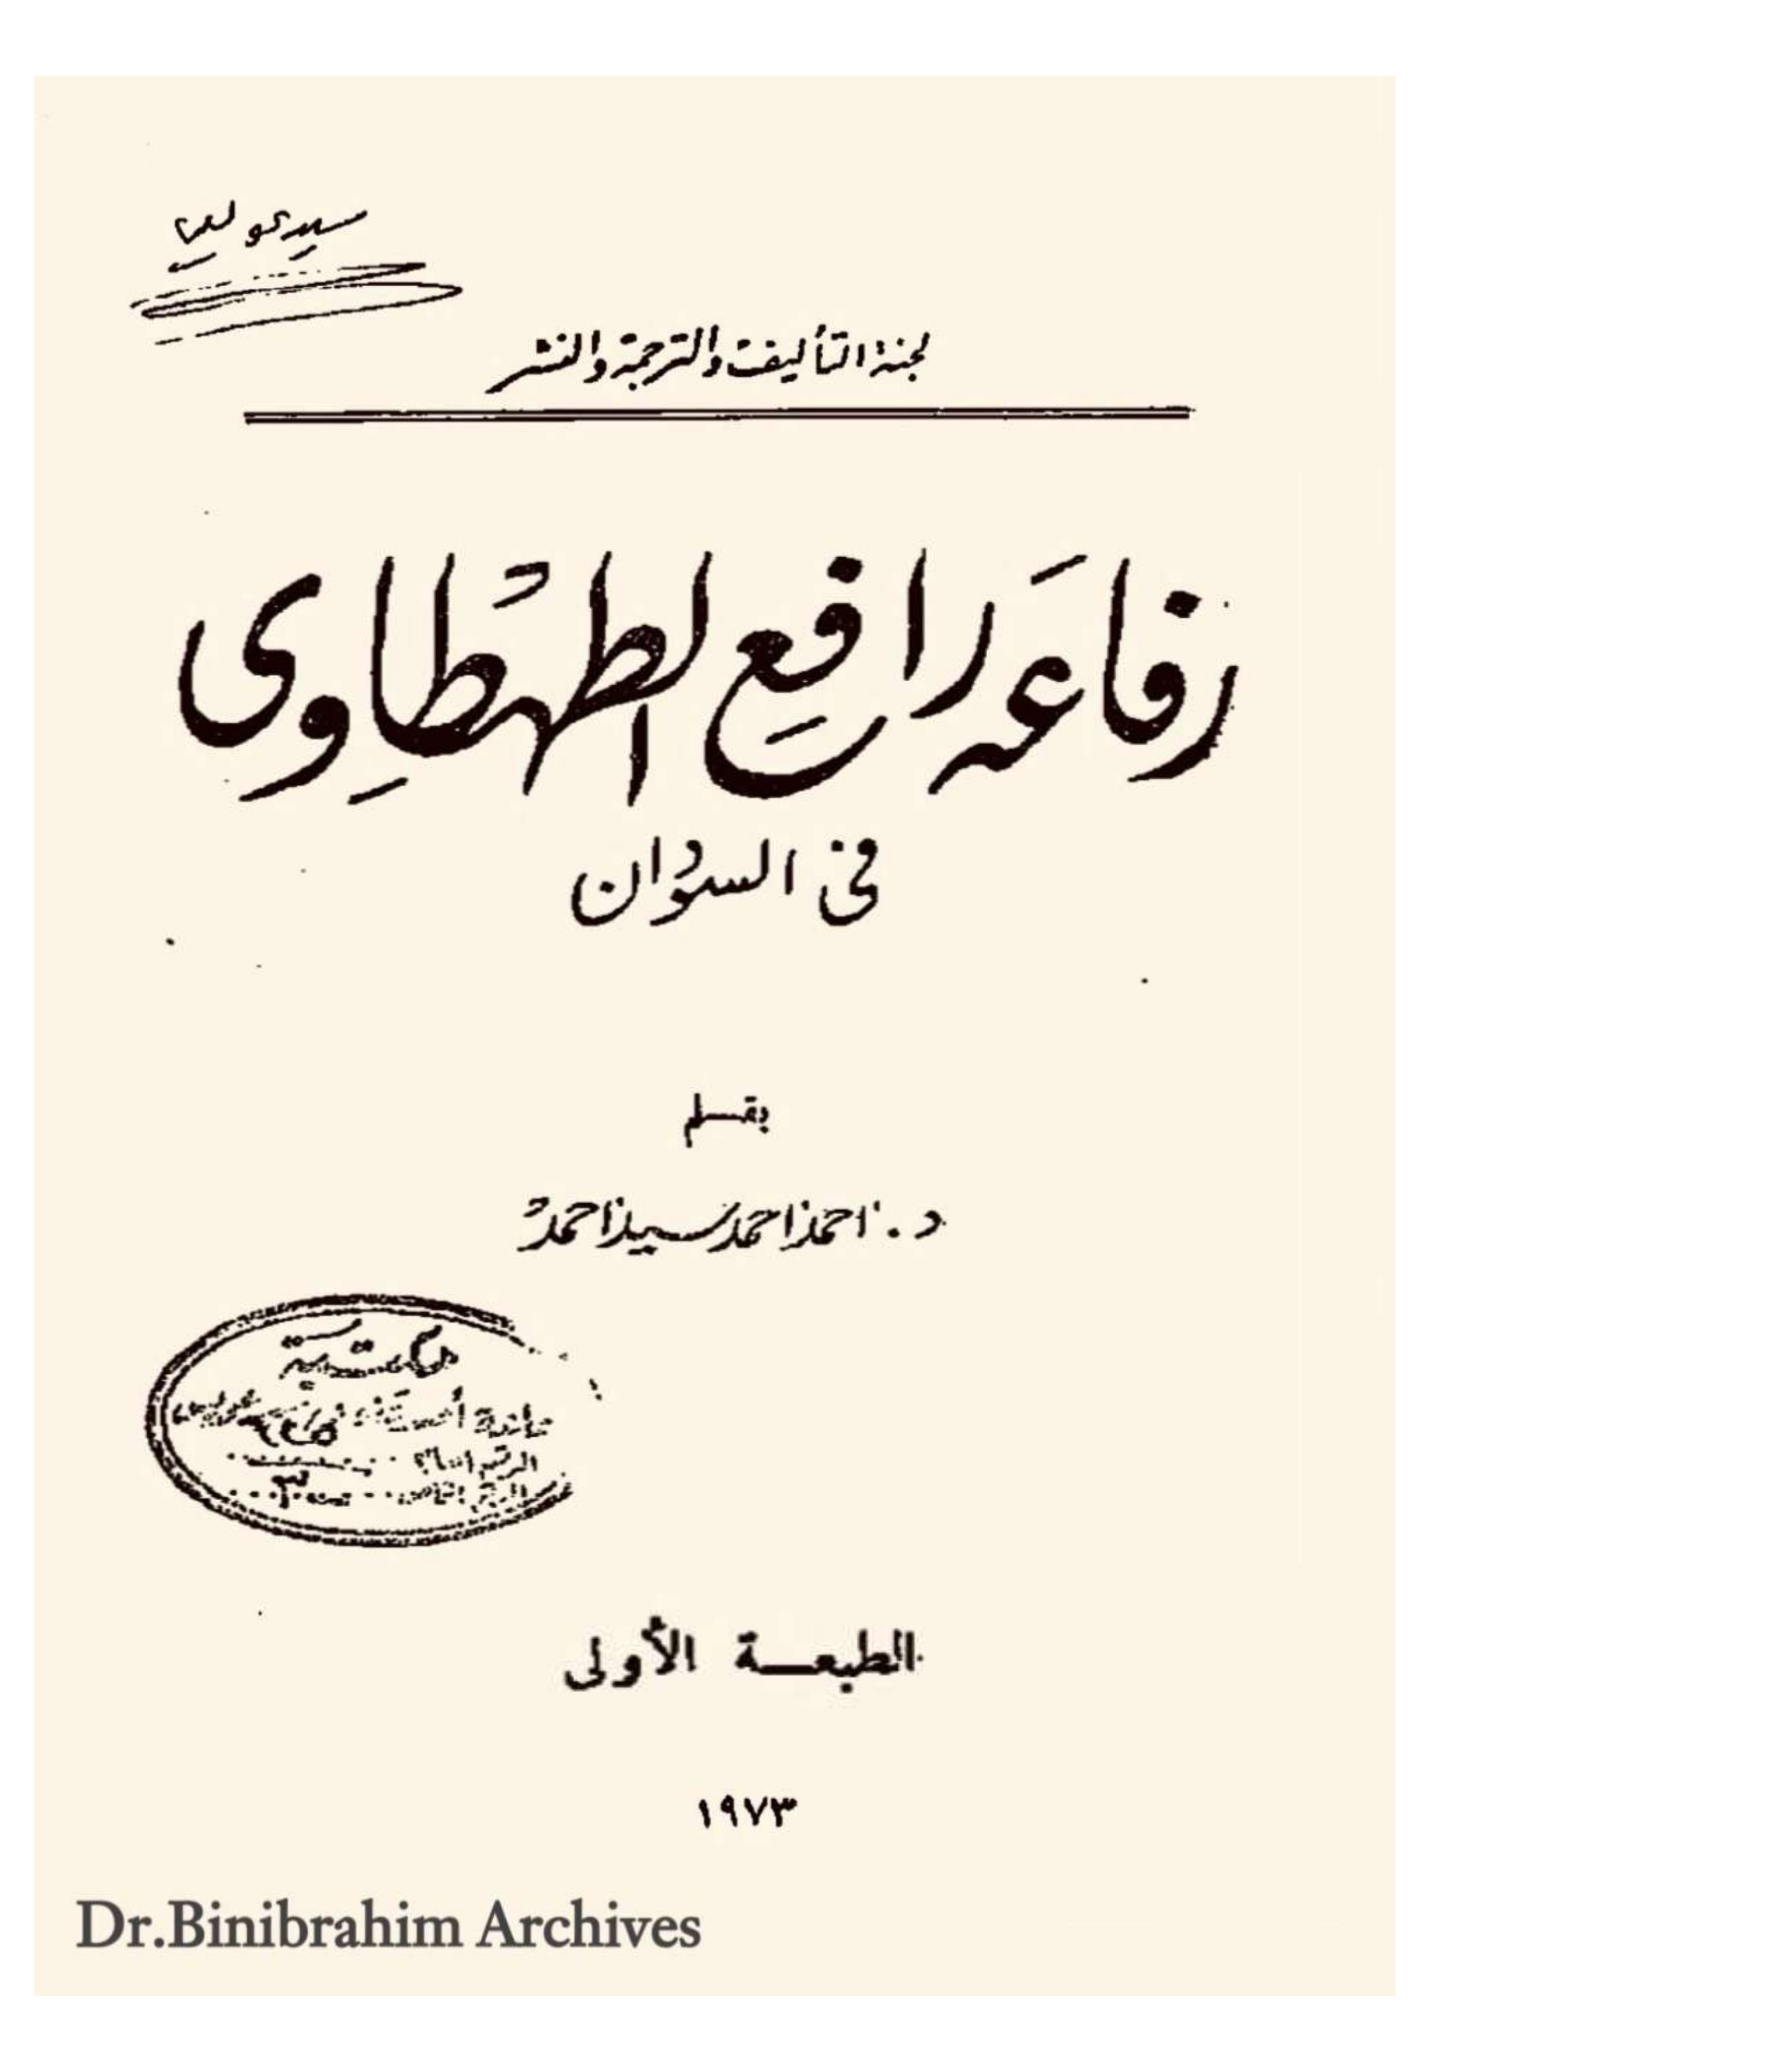 لجنة التأليف والترجمة والنشر
رفاعه رافع الطهطاوى
فى السودان
بقلم
د. احمد احمد سيد احمد
مكتبة
الطبعة الأولى
١٩٧٣
Dr.Binibrahim Archives